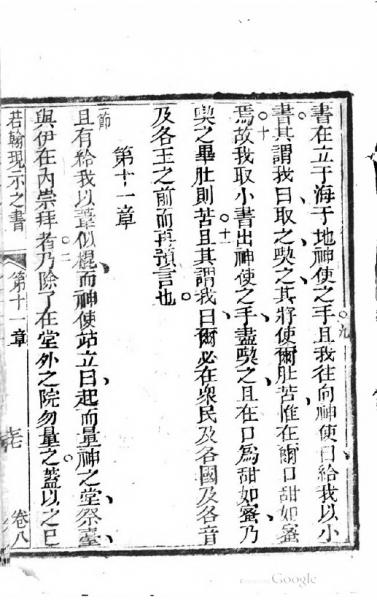 書在立于海于地神使之手且我往向神使曰給我以小
九
書其謂我曰取之喫之其將使爾肚苦惟在爾口甜如蜜
十
焉故我取小書出神使之手盡喫之且在口為甜如蜜乃
喫之畢肚則苦十一且其謂我曰爾必在衆民及各國及各音
及各王之前而再預言也
第十一章
一節
且有給我以葦似棍而神使站立曰起而量神之堂祭臺
與伊在內崇拜者二乃除了在堂外之院勿量之蓋以之已
若翰現示之書 第十一章 卷八
Google